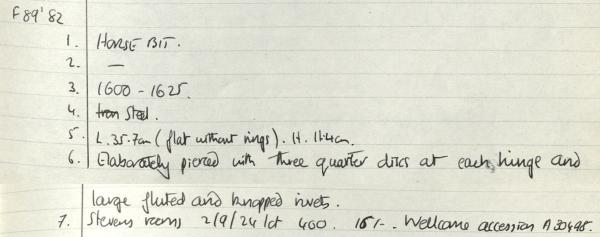 F89'82
1. HORSE BIT.
2. —
3. 1600 - 1625.
4. Iron Steel.
5. L. 35.7cm (flat without rings). H. 11.4cm.
6. Elaborately pierced with three quarter discs at each hinge and
large fluted and knopped rivets.
7. Stevens rooms 2/9/24 lot 400. 15/-. Wellcome accession A 30498.